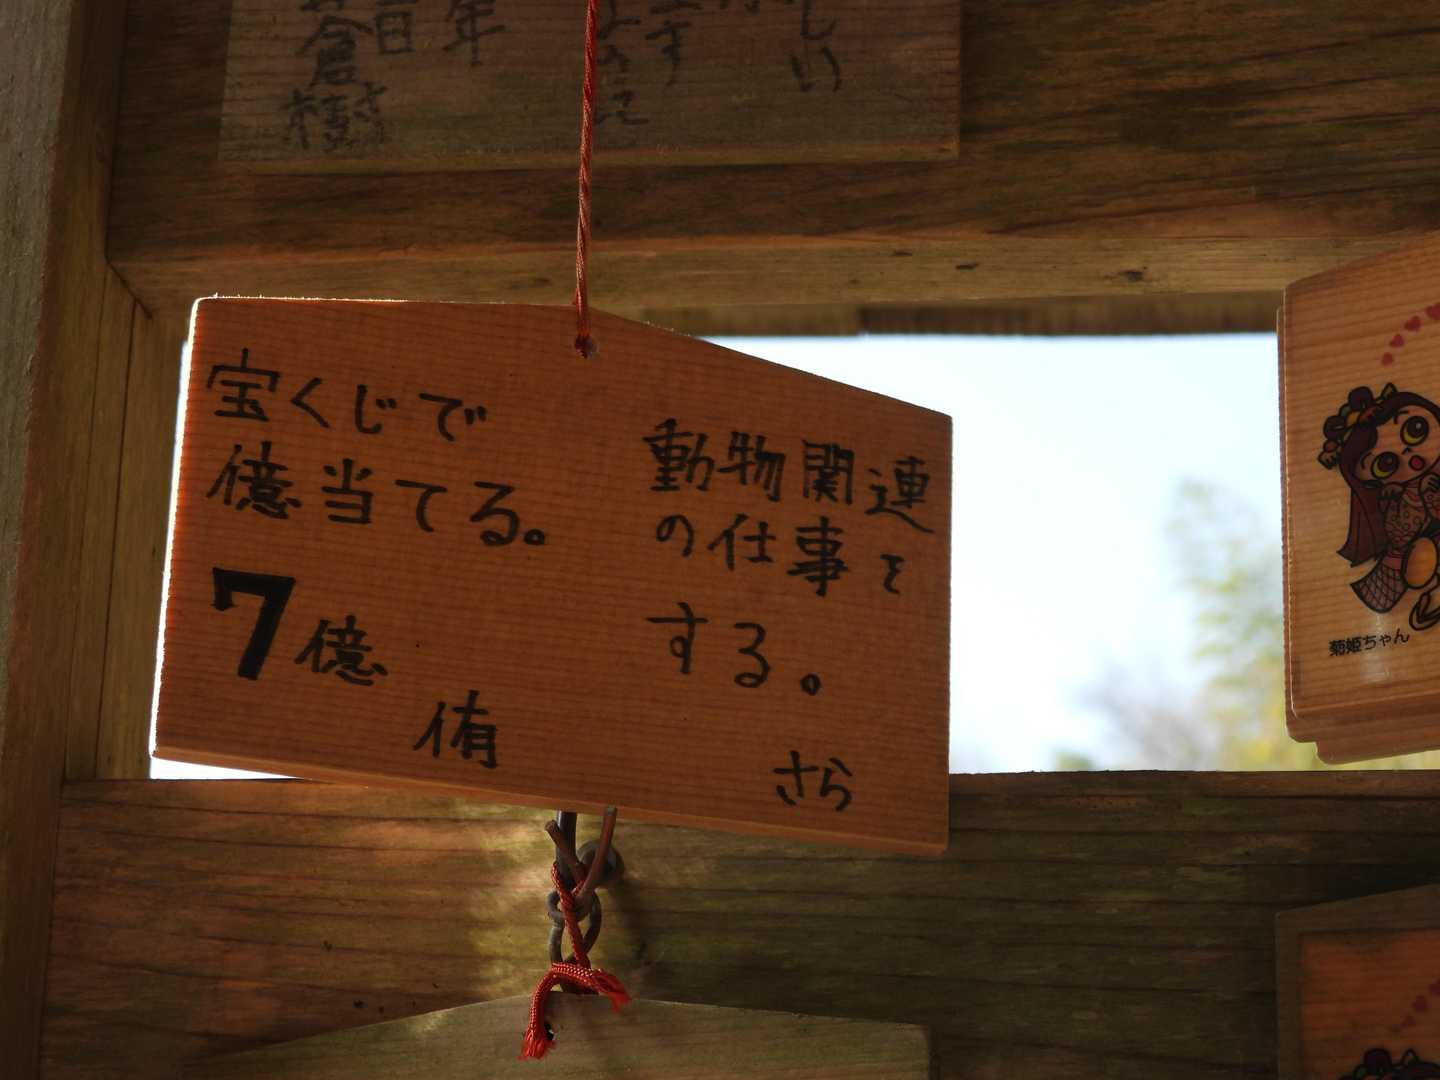 しい
ます
年
百
倉
樹
動物関連
の仕事を
する。
さら
宝くじで
億当てる。
7億
侑
菊姫ちゃん